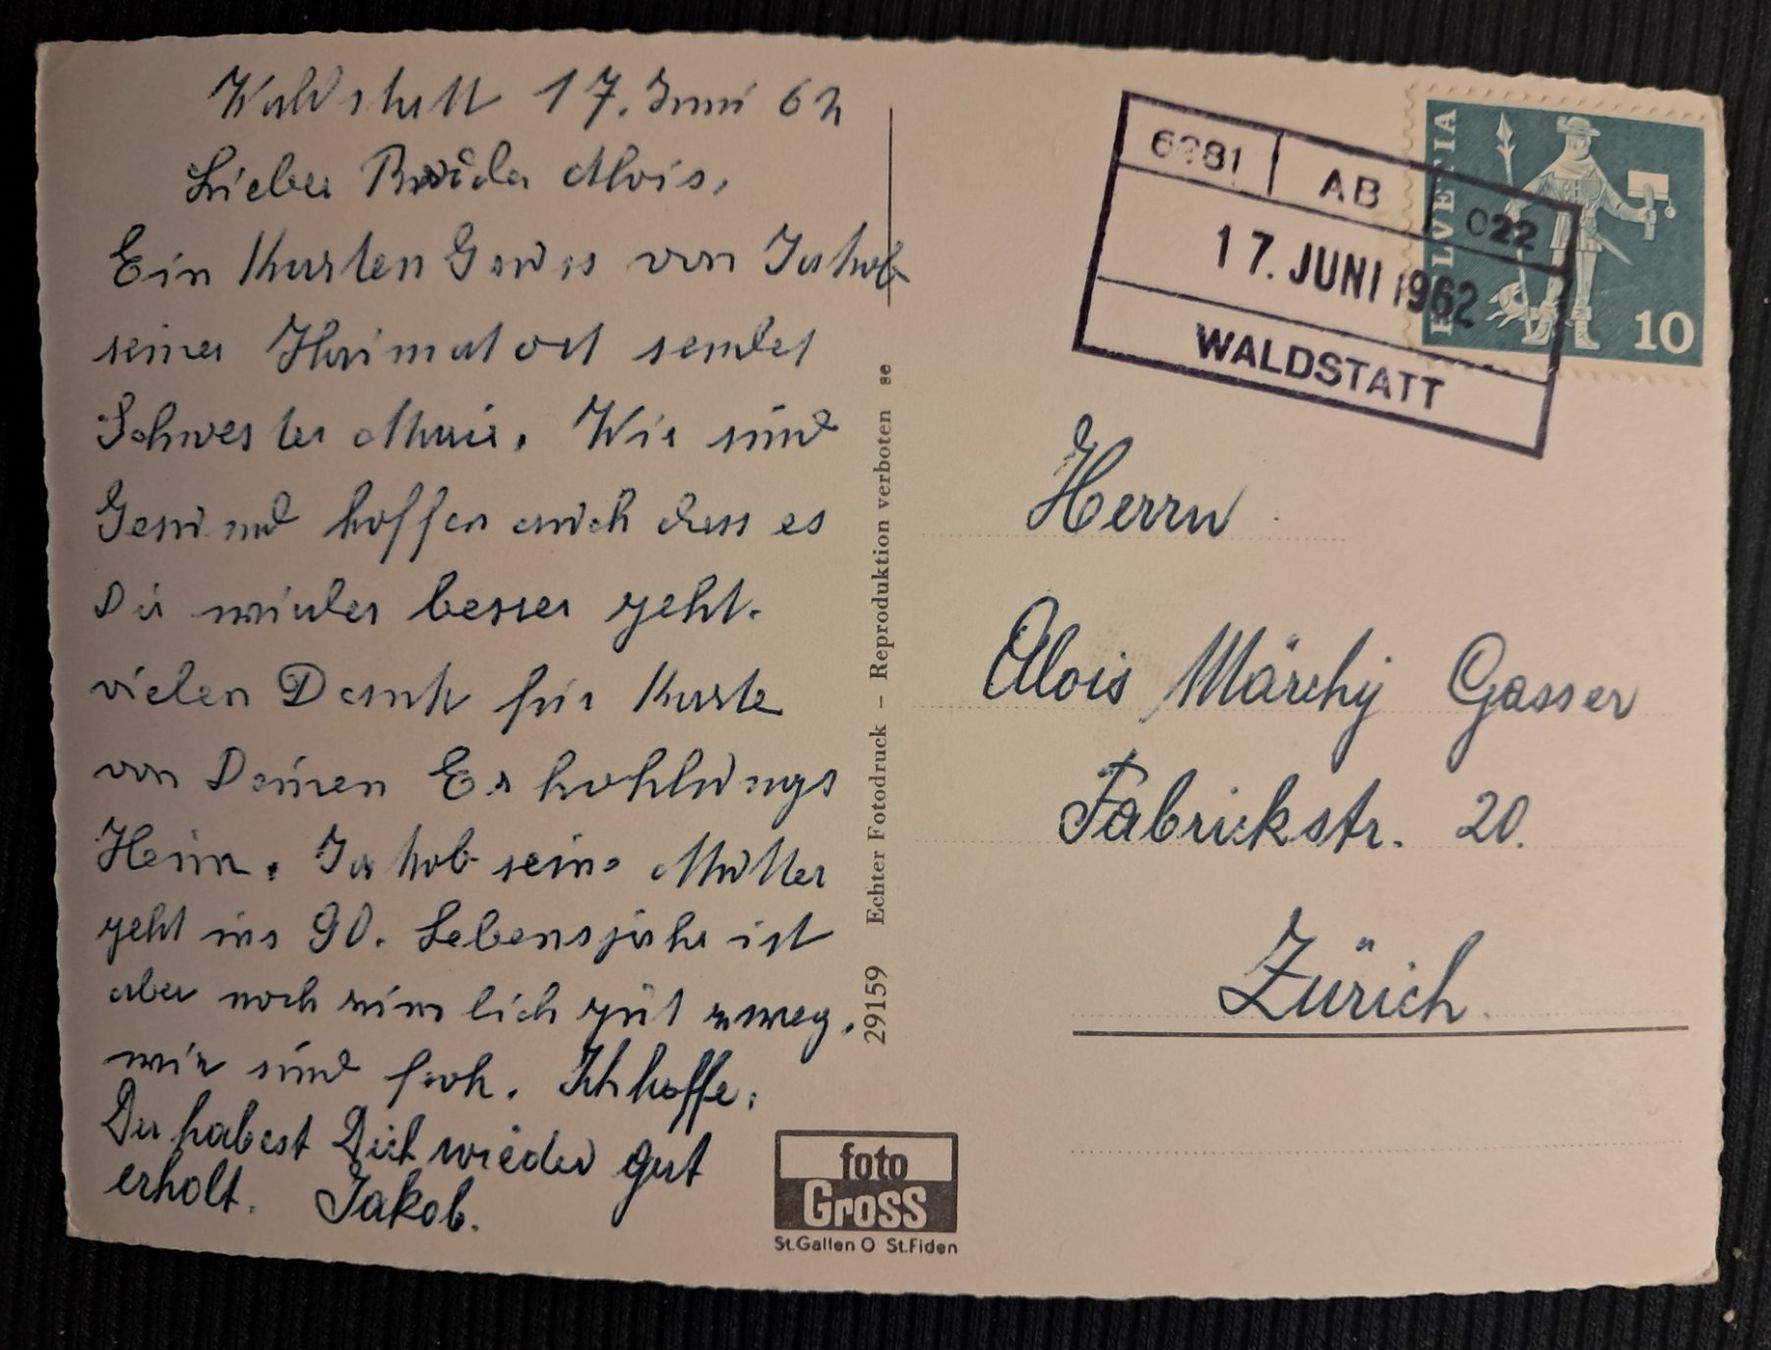 Waldstatt 17. Juni 62
Lieber Bruder Alois,
Ein Karten Gruss von Jakob
seiner Heimatort sendet
Schwester Marie. Wir sind
Gesund hoffen auch dass es
Dir wieder besser geht.
vielen Dank für Karte
von Deinen Erhohlungs
Heim. Jakob seine Mutter
geht ins 90. Lebensjahr ist
aber noch zimlich gut zweg.
wir sind froh. Ich hoffe,
Du habest Dich wieder gut
erholt. Jakob.
29159 Echter Fotodruck – Reproduktion verboten se
foto
Gross
St.Gallen O St.Fiden
AB 022
17. JUNI 1962
WALDSTATT
HELVETIA
10
Herrn
Alois Märchy Gasser
Fabrickstr. 20.
Zürich.